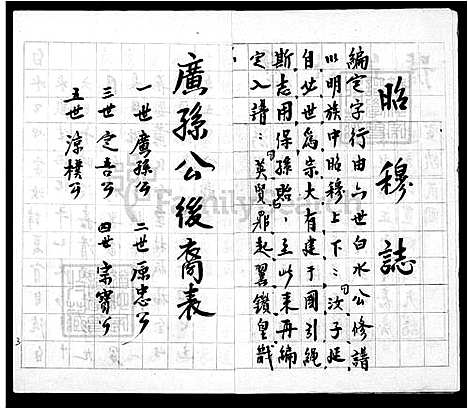 昭穆誌
編定字行由六世白水公修譜
以明族中昭穆上下：汝子延
自廿世為宗大有建于國引繩
斯志用保孫貽，至此來再編
定入譜：英賢鼎起翼鑽皇猷
廣孫公後裔表
一世廣孫公 二世原忠公
三世定吾公 四世宗寶公
五世淳樸公
3
FamilySearch